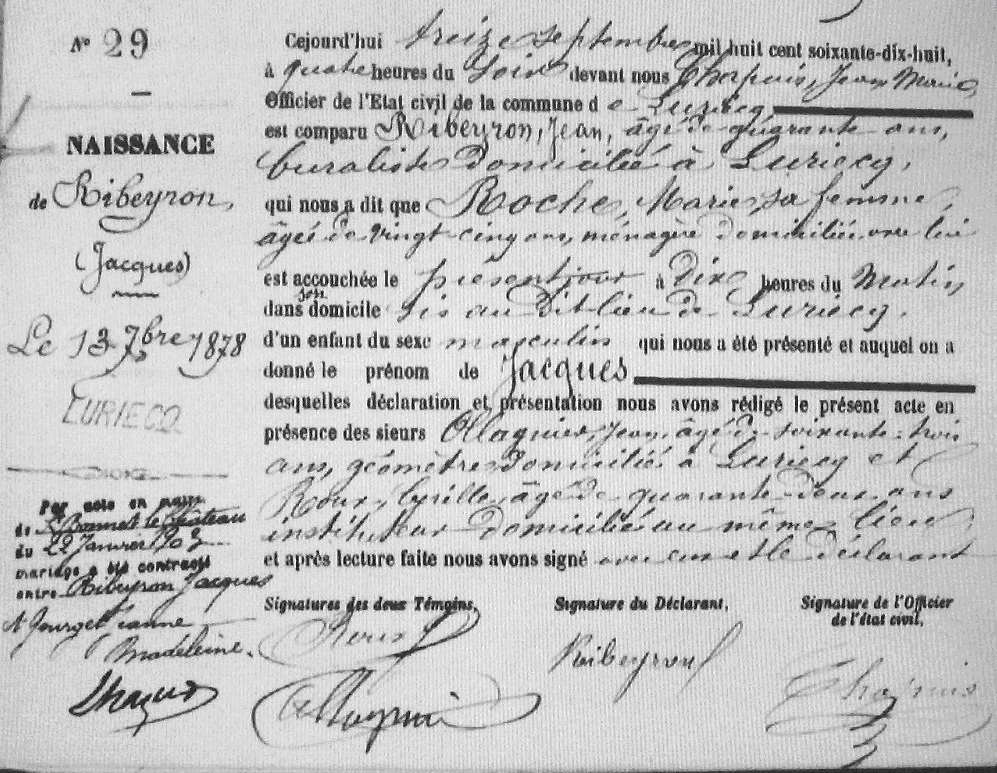 N° 29
NAISSANCE
de Ribeyron,
(Jacques)
Le 13 7bre 1878
LURIECQ
Par acte en mairie
de St Bonnet le Château
du 22 Janvier 1903
mariage a été contracté
entre Ribeyron Jacques
et Jeanne
Madeleine.
Cejourd'hui treize septembre mil huit cent soixante-dix-huit,
à quatre heures du Soir devant nous Chapuis, Jean Marie
Officier de l'Etat civil de la commune d e Luriecq
est comparu Ribeyron, Jean, âgé de quarante ans,
buraliste domicilié à Luriecq,
qui nous a dit que Roche, Marie, sa femme,
âgée de vingt cinq ans, ménagère domiciliée avec lui
est accouchée le présent jour à Dix heures du Matin
dans son domicile sis au dit lieu de Luriecq.
d'un enfant du sexe masculin qui nous a été présenté et auquel on a
donné le prénom de Jacques
desquelles déclaration et présentation nous avons rédigé le présent acte en
présence des sieurs Ollagnier, Jean, âgé de soixante-trois
ans, géomètre domicilié à Luriecq et
Roux, Cyrille, âgé de quarante-deux ans
instituteur domicilié au même lieu,
et après lecture faite nous avons signé avec eux et le déclarant
Signatures des deux Témoins, Signature du Déclarant, Signature de l'Officier
de l'état civil,
Roux
Ribeyron
Ollagnier
Chapuis